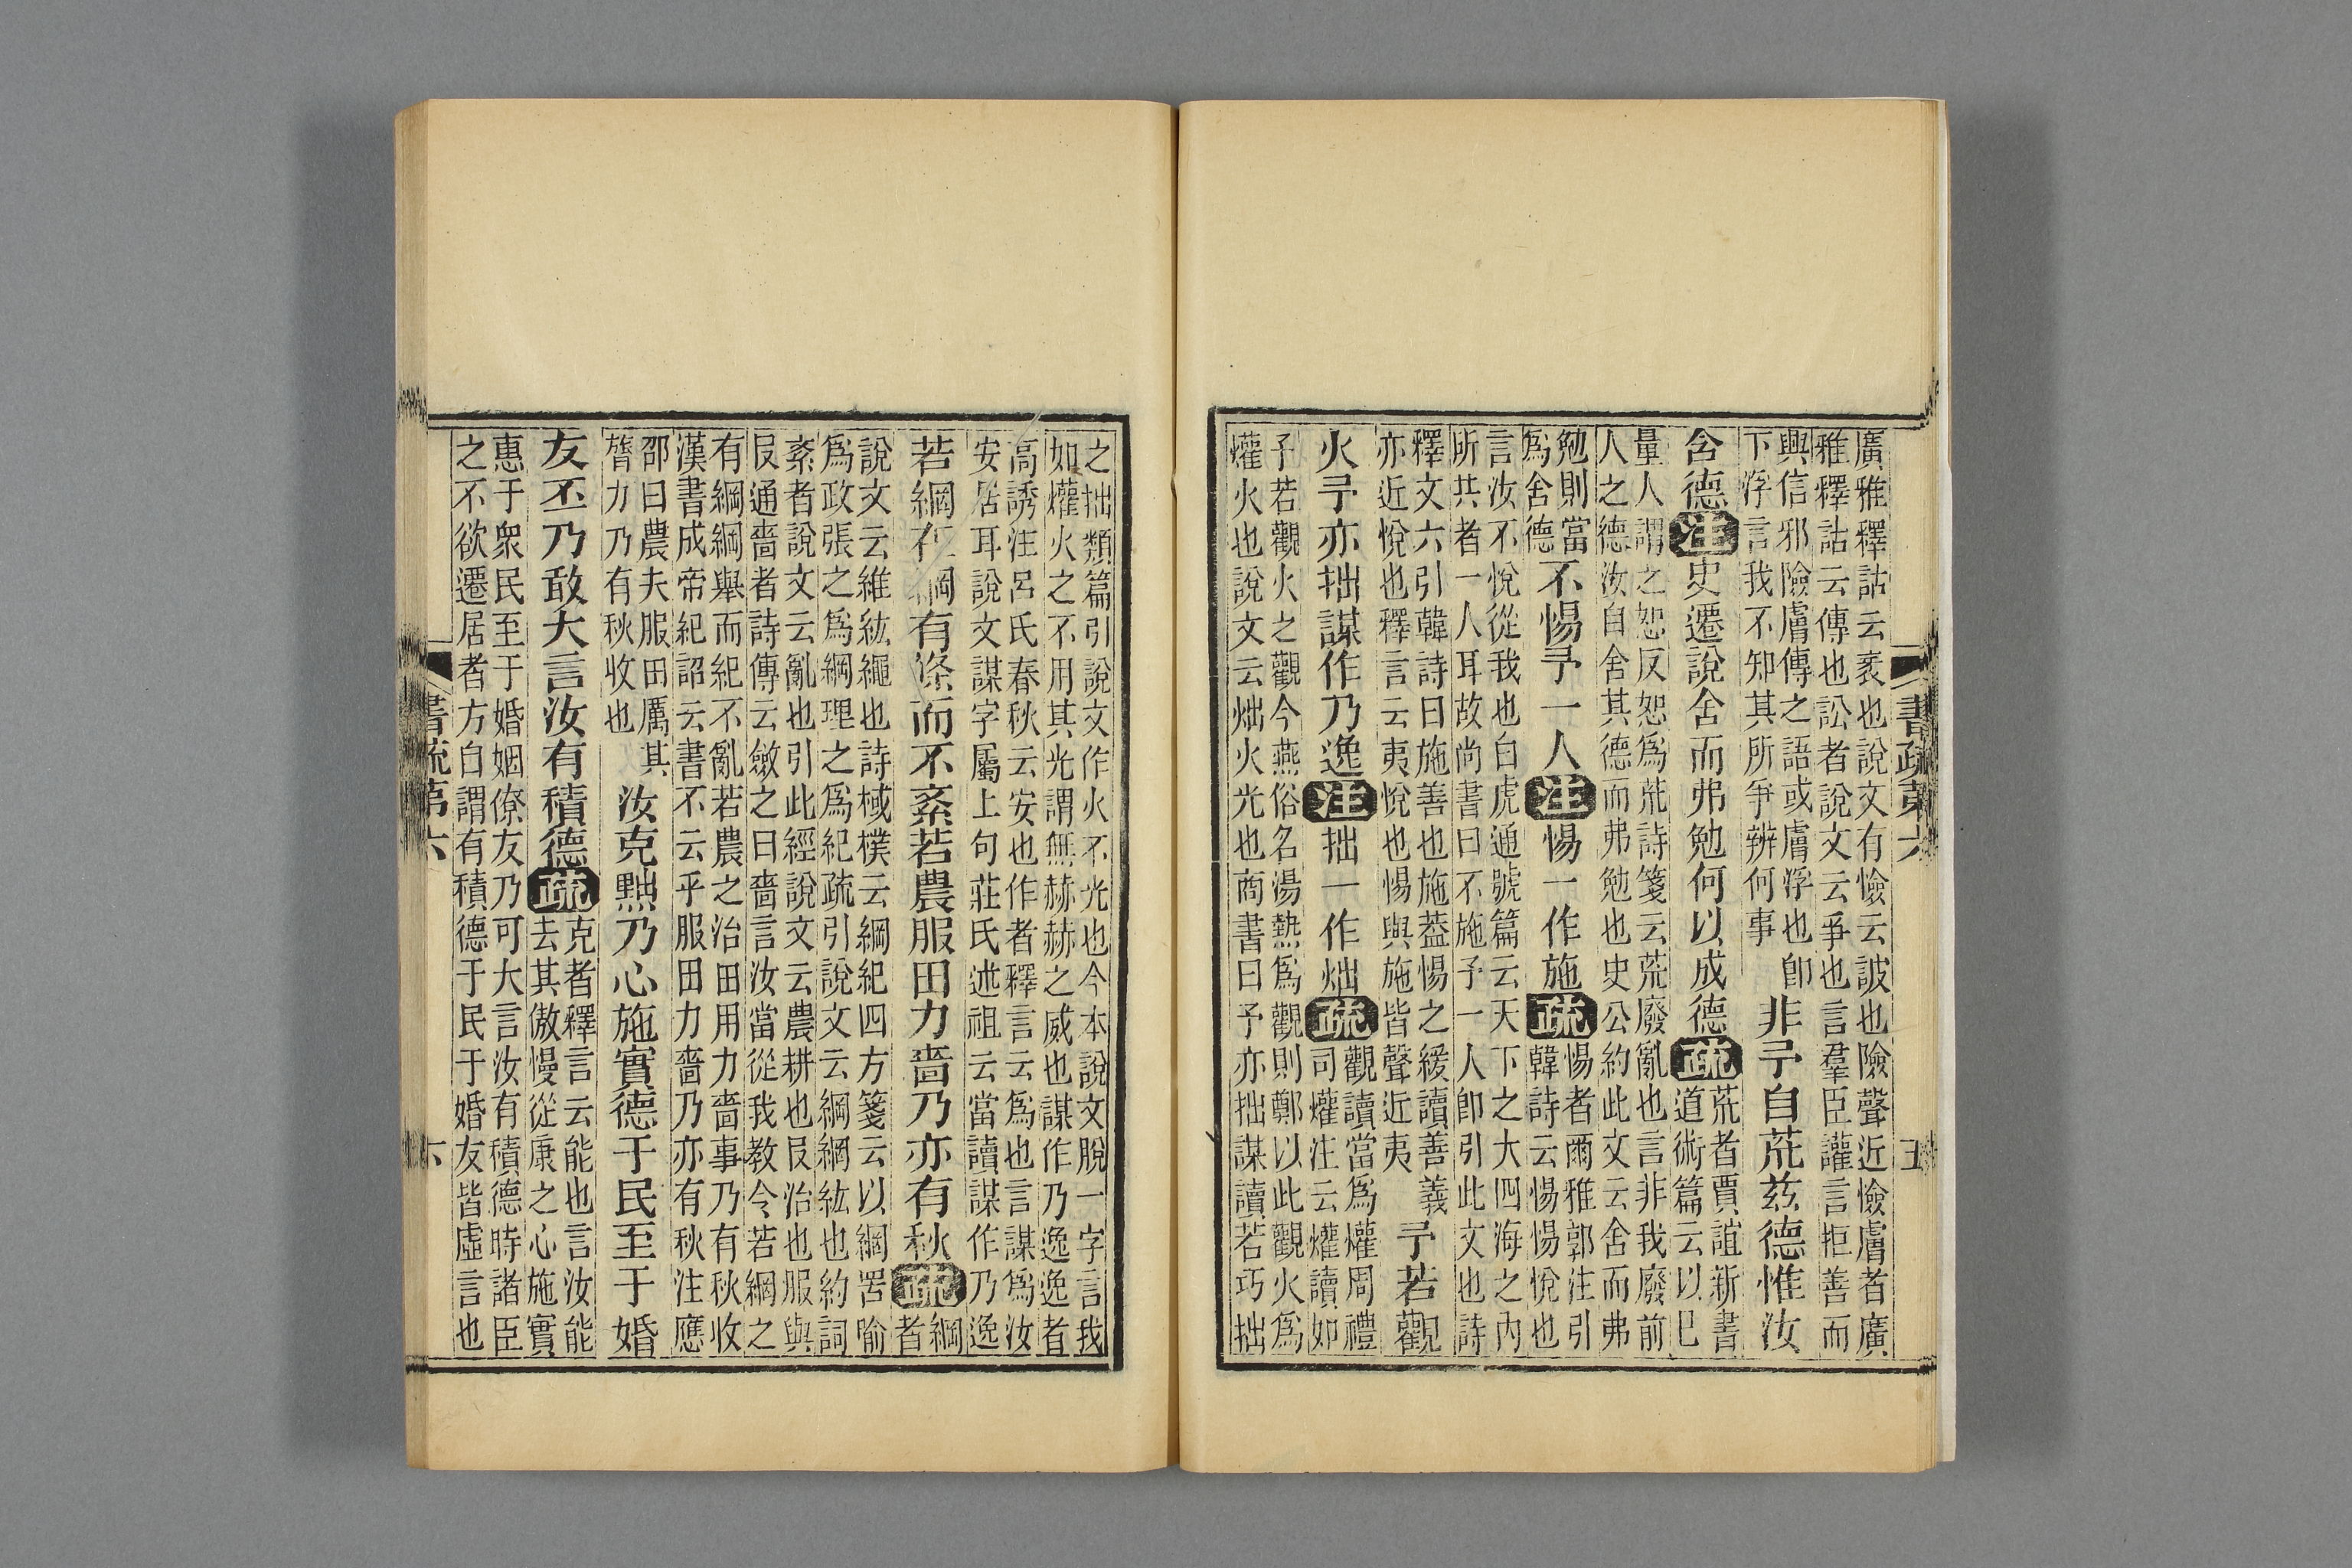 廣雅釋詁云衺也說文有憸云詖也險聲近憸膚者廣
雅釋詁云傳也訟者說文云爭也言羣臣讙言拒善而
興信邪險膚傳之語或膚浮也卽
下浮言我不知其所爭辨何事
非予自荒兹德惟汝
含德注史遷說舍而弗勉何以成德疏
荒者賈誼新書
道術篇云以巳
量人謂之恕反恕爲荒詩箋云荒廢亂也言非我廢前
人之德汝自舍其德而弗勉也史公約此文云舍而弗
勉則當
爲舍德
不惕予一人注惕一作施疏
惕者爾雅郭注引
韓詩云惕惕悅也
言汝不悅從我也白虎通號篇云天下之大四海之內
所共者一人耳故尚書曰不施予一人卽引此文也詩
釋文六引韓詩曰施善也施葢惕之緩讀善義
亦近悅也釋言云夷悅也惕與施皆聲近夷
予若觀
火予亦拙謀作乃逸注拙一作炪疏
觀讀當爲爟周禮
司爟注云爟讀如
予若觀火之觀今燕俗名湯熱爲觀則鄭以此觀火爲
爟火也說文云炪火光也商書曰予亦拙謀讀若巧拙
書疏第六
五
之拙類篇引說文作火不光也今本說文脫一字言我
如爟火之不用其光謂無赫赫之威也謀作乃逸逸者
高誘注呂氏春秋云安也作者釋言云爲也言謀爲汝
安居耳說文謀字屬上句莊氏述祖云當讀謀作乃逸
若網在綱有條而不紊若農服田力嗇乃亦有秋疏
綱
者
說文云維紘繩也詩棫樸云綱紀四方箋云以網罟喻
爲政張之爲綱理之爲紀疏引說文云綱網紘也約詞
紊者說文云亂也引此經說文云農耕也𠬝治也服與
𠬝通嗇者詩傳云斂之曰嗇言汝當從我教令若網之
有綱綱舉而紀不亂若農之治田用力嗇事乃有秋收
漢書成帝紀詔云書不云乎服田力嗇乃亦有秋注應
邵曰農夫服田厲其
膂力乃有秋收也
汝克黜乃心施實德于民至于婚
友丕乃敢大言汝有積德疏
克者釋言云能也言汝能
去其傲慢從康之心施實
惠于衆民至于婚姻僚友乃可大言汝有積德時諸臣
之不欲遷居者方自謂有積德于民于婚友皆虛言也
書疏第六
六